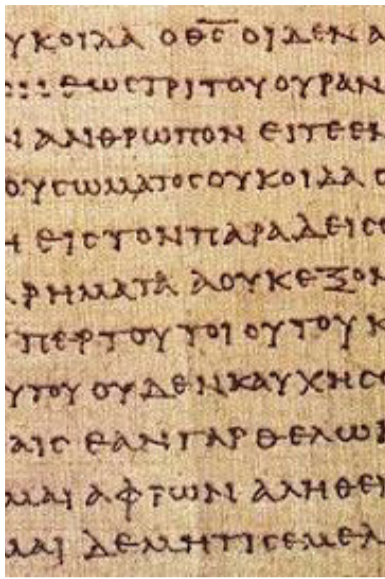 ΥΚΟΙΔΑ Ο Θ̅Ϲ̅ ΟΙΔΕΝ Α
ΕΩϹ ΤΡΙΤΟΥ ΟΥΡΑΝ
Ν ΑΝΘΡΩΠΟΝ ΕΙΤΕ ΕΝ
ΟΥ ϹΩΜΑΤΟϹ ΟΥΚ ΟΙΔΑ Ο
Η ΕΙϹ ΤΟΝ ΠΑΡΑΔΕΙϹΟ
ΡΗΜΑΤΑ Α ΟΥΚ ΕΞΟΝ
ΥΠΕΡ ΤΟΥ ΤΟΙΟΥΤΟΥ Κ
ΥΤΟΥ ΟΥΔΕΝ ΚΑΥΧΗϹΟ
ΑΙϹ ΕΑΝ ΓΑΡ ΘΕΛΩ
ΜΑΙ ΑΦΡΩΝ ΑΛΗΘΕΙ
ΜΑΙ ΔΕ ΜΗ ΤΙϹ ΕΜΕ Λ